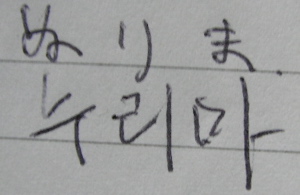 ぬりま
누리마